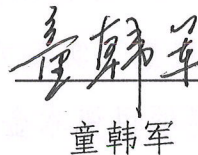 童韩军
童韩军